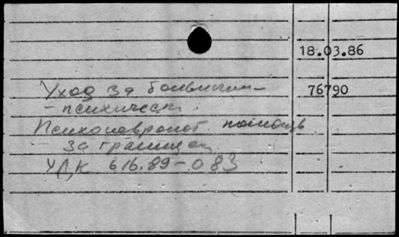 18.03.86
Уход за больными - 76790
- психичест
Психоневролог. помощь
за границей
УДК 616.89-083